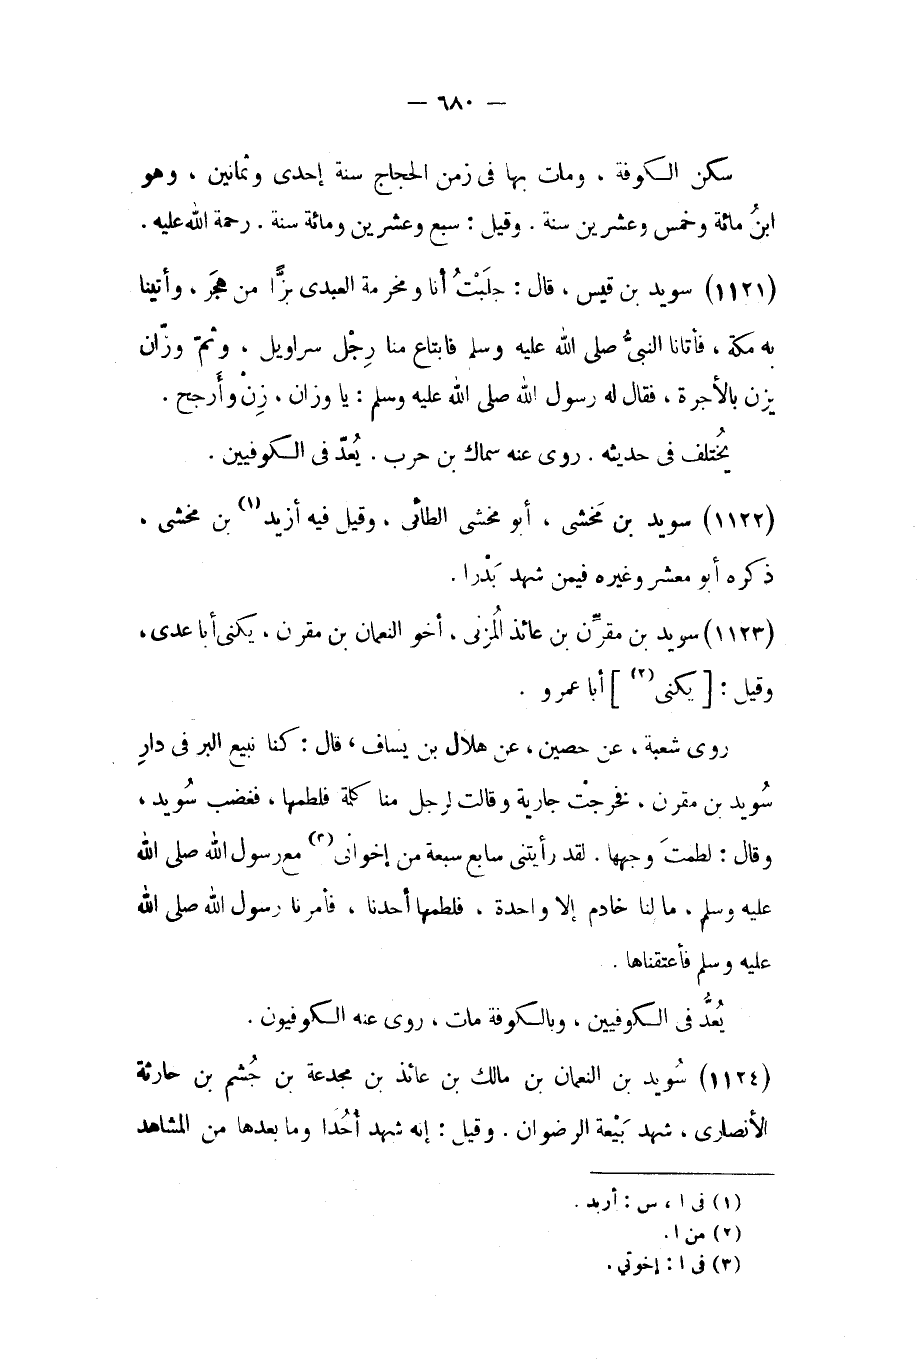 — ٦٨٠ —
سكن الكوفة ، ومات بها فى زمن الحجاج سنة إحدى وثمانين ، وهو
ابنُ مائة وخمس وعشرين سنة . وقيل : سبع وعشرين ومائة سنة . رحمة الله عليه .
(١١٢١) سويد بن قيس ، قال : جلَبْتُ أنا ومخرمة العبدى بزًّا من هجَر ، وأتينا
به مكة ، فأتانا النبىُّ صلى الله عليه وسلم فابتاع منا رِجْل سراويل ، وثَمّ وزّان
يزن بالأجرة ، فقال له رسول الله صلى الله عليه وسلم : يا وزان ، زِنْ وأَرجح .
يُختلف فى حديثه . روى عنه سماك بن حرب . يُعَدّ فى الكوفيين .
(١١٢٢) سويد بن مَخشى ، أبو مخشى الطائى ، وقيل فيه أزيد(١) بن مخشى ،
ذكره أبو معشر وغيره فيمن شهد بَدْرا .
(١١٢٣) سويد بن مقرِّن بن عائذ المُزنى ، أخو النعمان بن مقرن ، يكنى أبا عدى ،
وقيل : [ يكنى(٢) ] أبا عمرو .
روى شعبة ، عن حصين ، عن هلال بن يساف ، قال : كنا نبيع البر فى دارِ
سُويد بن مقرن ، فخرجتْ جارية وقالت لرجل منا كلمة فلطمها ، فغضب سُويد ،
وقال : لطمتَ وجهها . لقد رأيتنى سابع سبعة من إخوانى(٣) مع رسول الله صلى الله
عليه وسلم ، ما لنا خادم إلا واحدة ، فلطمها أحدنا ، فأمرنا رسول الله صلى الله
عليه وسلم فأعتقناها .
يُعَدُّ فى الكوفيين ، وبالكوفة مات ، روى عنه الكوفيون .
(١١٢٤) سُويد بن النعمان بن مالك بن عائذ بن مجدعة بن جُشم بن حارثة
الأنصارى ، شهد بَيْعة الرضوان . وقيل : إنه شهد أُحُدًا وما بعدها من المشاهد
(١) فى ا ، س : أربد .
(٢) من ا .
(٣) فى ا : إخوتي .